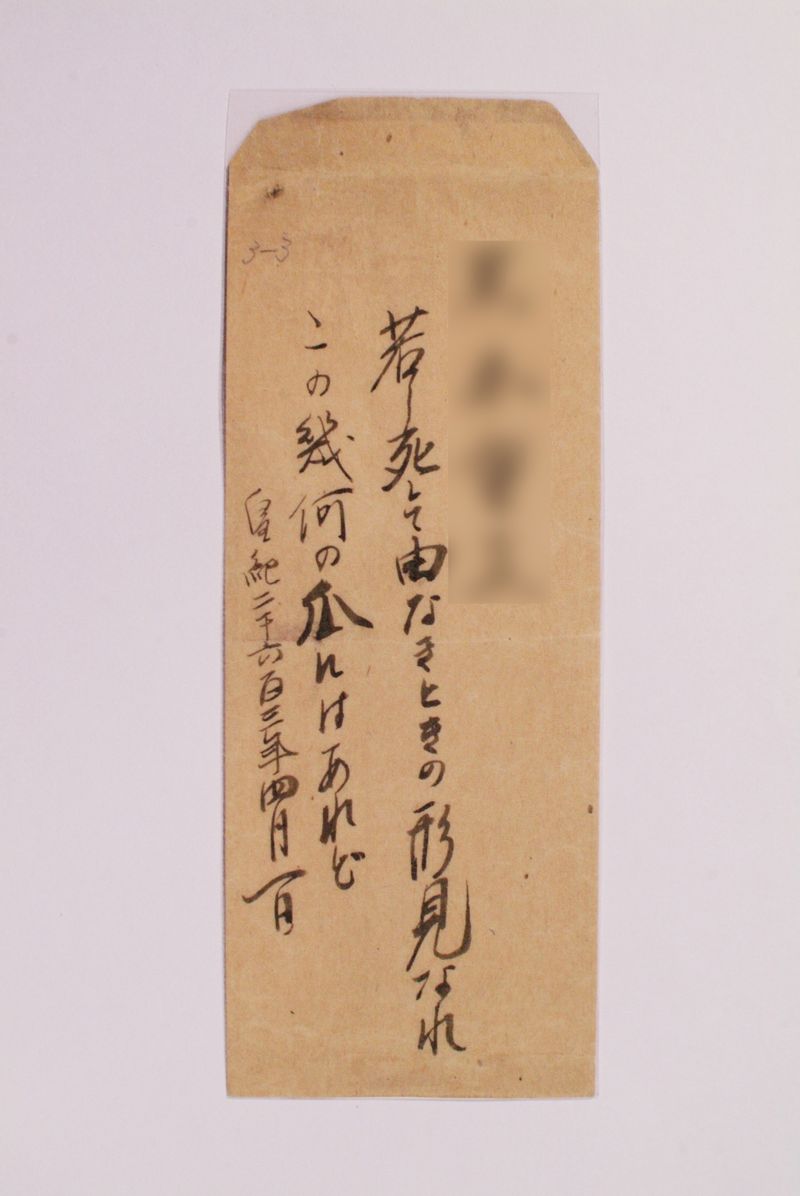 若し死して由なきときの形見なれ
この幾何の瓜にはあれど
皇紀二千六百三年四月一日
3-3